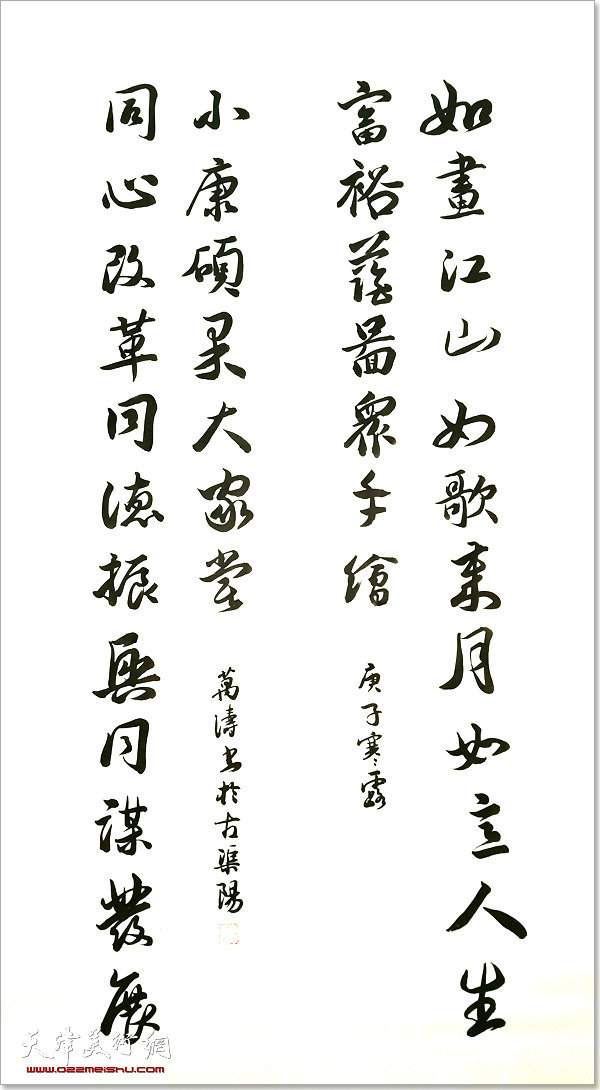 如畫江山如歌歲月如意人生
富裕藍圖衆手繪
庚子寒露
同心改革同德振興同謀發展
小康碩果大家嘗
萬濤书於古渠陽
天津美術網
www.022meishu.com